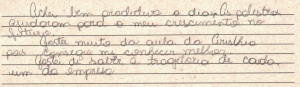 Achei bem produtivo o dia. As palestras
ajudaram para o meu crescimento no
futuro.
Gostei muito da aula da
pois consegui me conhecer melhor.
Gostei de saber a trajetória de cada
um da empresa